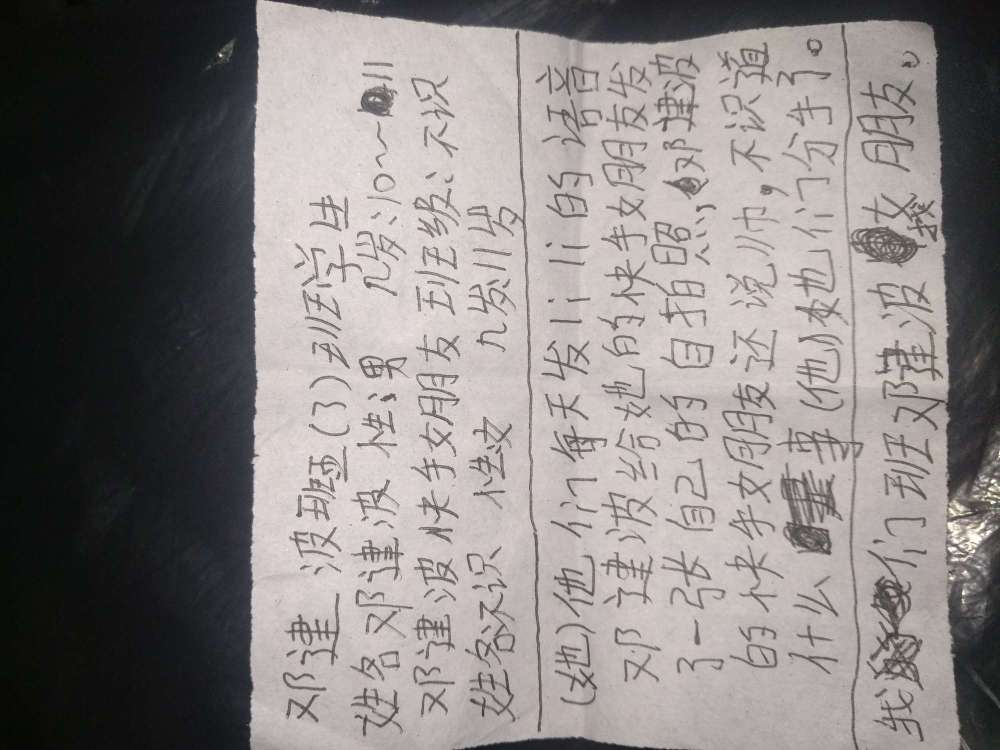 邓建 波班(3)班学生
姓名邓建波 性:男 几岁:10~11
邓建波快手女朋友 班级:不识
姓名不识 性女 几岁11岁
(她)他们每天发iiii的语音
邓建波给她的快手女朋友发
了一张自己的自拍照,邓建波
的快手女朋友还说帅,不识道
什么事(他)她们分手了。
我们班邓建波找女朋友。